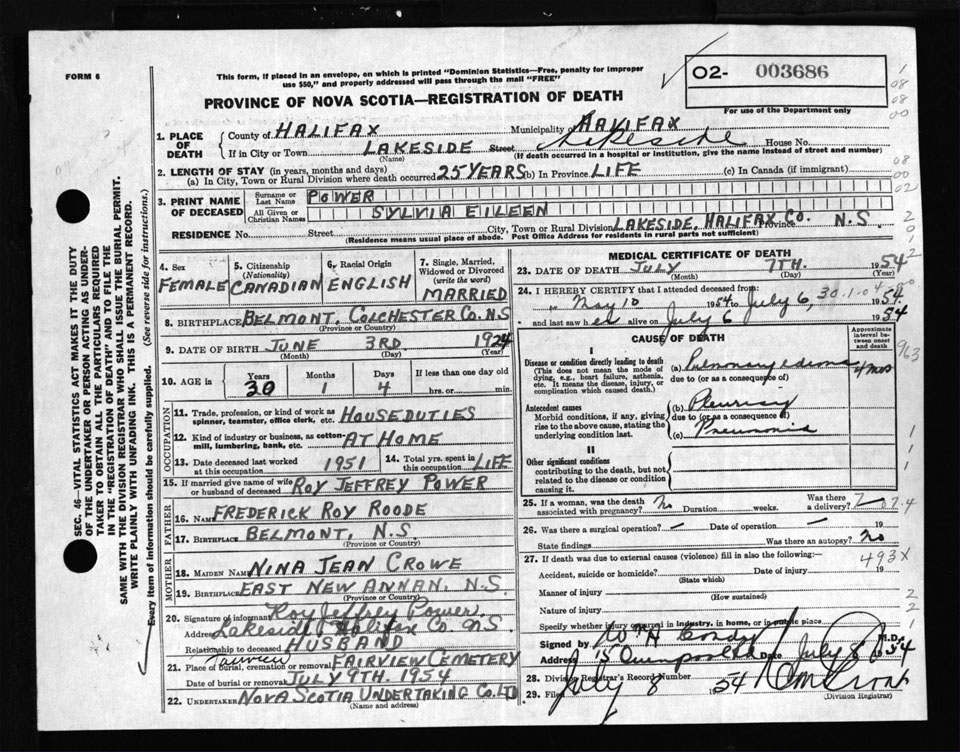 FORM 6
This form, if placed in an envelope, on which is printed "Dominion Statistics—Free, penalty for improper
use $50," and properly addressed will pass through the mail "FREE"
02- 003686
For use of the Department only
PROVINCE OF NOVA SCOTIA—REGISTRATION OF DEATH
1. PLACE OF DEATH
County of HALIFAX Municipality of HALIFAX
If in City or Town LAKESIDE Street Lakeside House No.
(Name) (If death occurred in a hospital or institution, give the name instead of street and number)
2. LENGTH OF STAY (in years, months and days)
(a) In City, Town or Rural Division where death occurred 25 YEARS (b) In Province LIFE (c) In Canada (if immigrant)
3. PRINT NAME OF DECEASED
Surname or Last Name POWER
All Given or Christian Names SYLVIA EILEEN
RESIDENCE No. Street City, Town or Rural Division LAKESIDE, HALIFAX CO. Province N.S.
(Residence means usual place of abode. Post Office Address for residents in rural parts not sufficient)
4. Sex FEMALE
5. Citizenship (Nationality) CANADIAN
6. Racial Origin ENGLISH
7. Single, Married, Widowed or Divorced (write the word) MARRIED
8. BIRTHPLACE BELMONT, COLCHESTER CO. N.S
(Province or Country)
9. DATE OF BIRTH JUNE 3RD 1924
(Month) (Day) (Year)
10. AGE IS Years 30 Months 1 Days 4 If less than one day old hrs. or min.
OCCUPATION
11. Trade, profession, or kind of work as spinner, teamster, office clerk, etc. HOUSE DUTIES
12. Kind of industry or business, as cotton mill, lumbering, bank, etc. AT HOME
13. Date deceased last worked at this occupation 1951
14. Total yrs. spent in this occupation LIFE
15. If married give name of wife or husband of deceased ROY JEFFREY POWER
FATHER
16. NAME FREDERICK ROY ROODE
17. BIRTHPLACE BELMONT, N.S.
(Province or Country)
MOTHER
18. MAIDEN NAME NINA JEAN CROWE
19. BIRTHPLACE EAST NEW ANNAN, N.S.
(Province or Country)
20. Signature of informant Roy Jeffrey Power.
Address Lakeside Halifax Co. N.S.
Relationship to deceased HUSBAND
21. Place of burial, cremation or removal Fairview FAIRVIEW CEMETERY
Date of burial or removal JULY 9TH. 1954
22. UNDERTAKER NOVA SCOTIA UNDERTAKING CO. LTD
(Name and address)
MEDICAL CERTIFICATE OF DEATH
23. DATE OF DEATH JULY 7TH. 1954
(Month) (Day) (Year)
24. I HEREBY CERTIFY that I attended deceased from:
May 10 1954 to July 6, 1954
and last saw her alive on July 6 1954
CAUSE OF DEATH
Approximate interval between onset and death
I
Disease or condition directly leading to death
(This does not mean the mode of dying, e.g., heart failure, asthenia, etc. It means the disease, injury, or complication which caused death.)
(a) Pulmonary edema 4 mos
due to (or as a consequence of)
Antecedent causes
Morbid conditions, if any, giving rise to the above cause, stating the underlying condition last.
(b) Pleurisy
due to (or as a consequence of)
(c) Pneumonia
II
Other significant conditions
contributing to the death, but not related to the disease or condition causing it.
25. If a woman, was the death associated with pregnancy? No Duration weeks. Was there a delivery?
26. Was there a surgical operation? — Date of operation — 19
State findings Was there an autopsy? No
27. If death was due to external causes (violence) fill in also the following:—
493X
Accident, suicide or homicide? Date of injury 19
(State which)
Manner of injury
(How sustained)
Nature of injury
Specify whether injury occurred in industry, in home, or in public place
Signed by M.D.
Address Date July 8 54
28. Division Registrar's Record Number
29. Filed July 8 1954
(Division Registrar)
SEC. 46—VITAL STATISTICS ACT MAKES IT THE DUTY
OF THE UNDERTAKER OR PERSON ACTING AS UNDER-
TAKER TO OBTAIN ALL THE PARTICULARS REQUIRED
IN THE "REGISTRATION OF DEATH" AND TO FILE THE
SAME WITH THE DIVISION REGISTRAR WHO SHALL ISSUE THE BURIAL PERMIT.
WRITE PLAINLY WITH UNFADING INK. THIS IS A PERMANENT RECORD.
Every item of information should be carefully supplied. (See reverse side for instructions.)